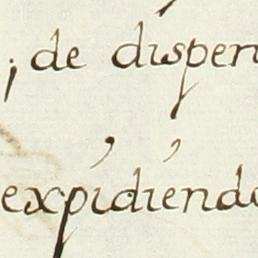 ; de dispen
expidiendo